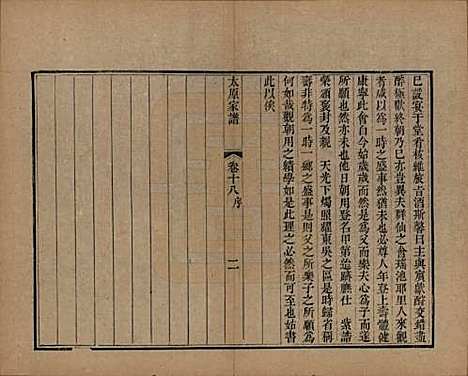 已設宴于堂肴核維旅旨酒斯馨日主與賓獻酬交錯盡
醉極歡終朝乃已亦豈異夫群仙之會瑤池耶里人來觀
者咸以為一時之盛事然猶未也必尊人年登上壽體健
康寧此會自今始歲歲而為之而樂夫心為子而遂
所願也然亦未也他日朝用登名甲第迨躋膴仕 紫誥
榮頒褒封及親 天光下燭照耀東吳之區是時歸省稱
壽非特為一時一鄉之盛事是則父之所樂子之所願為
何如哉觀朝用之積學如是此理之必然而亡也姑書
此以俟
太原家譜
卷十八序
二